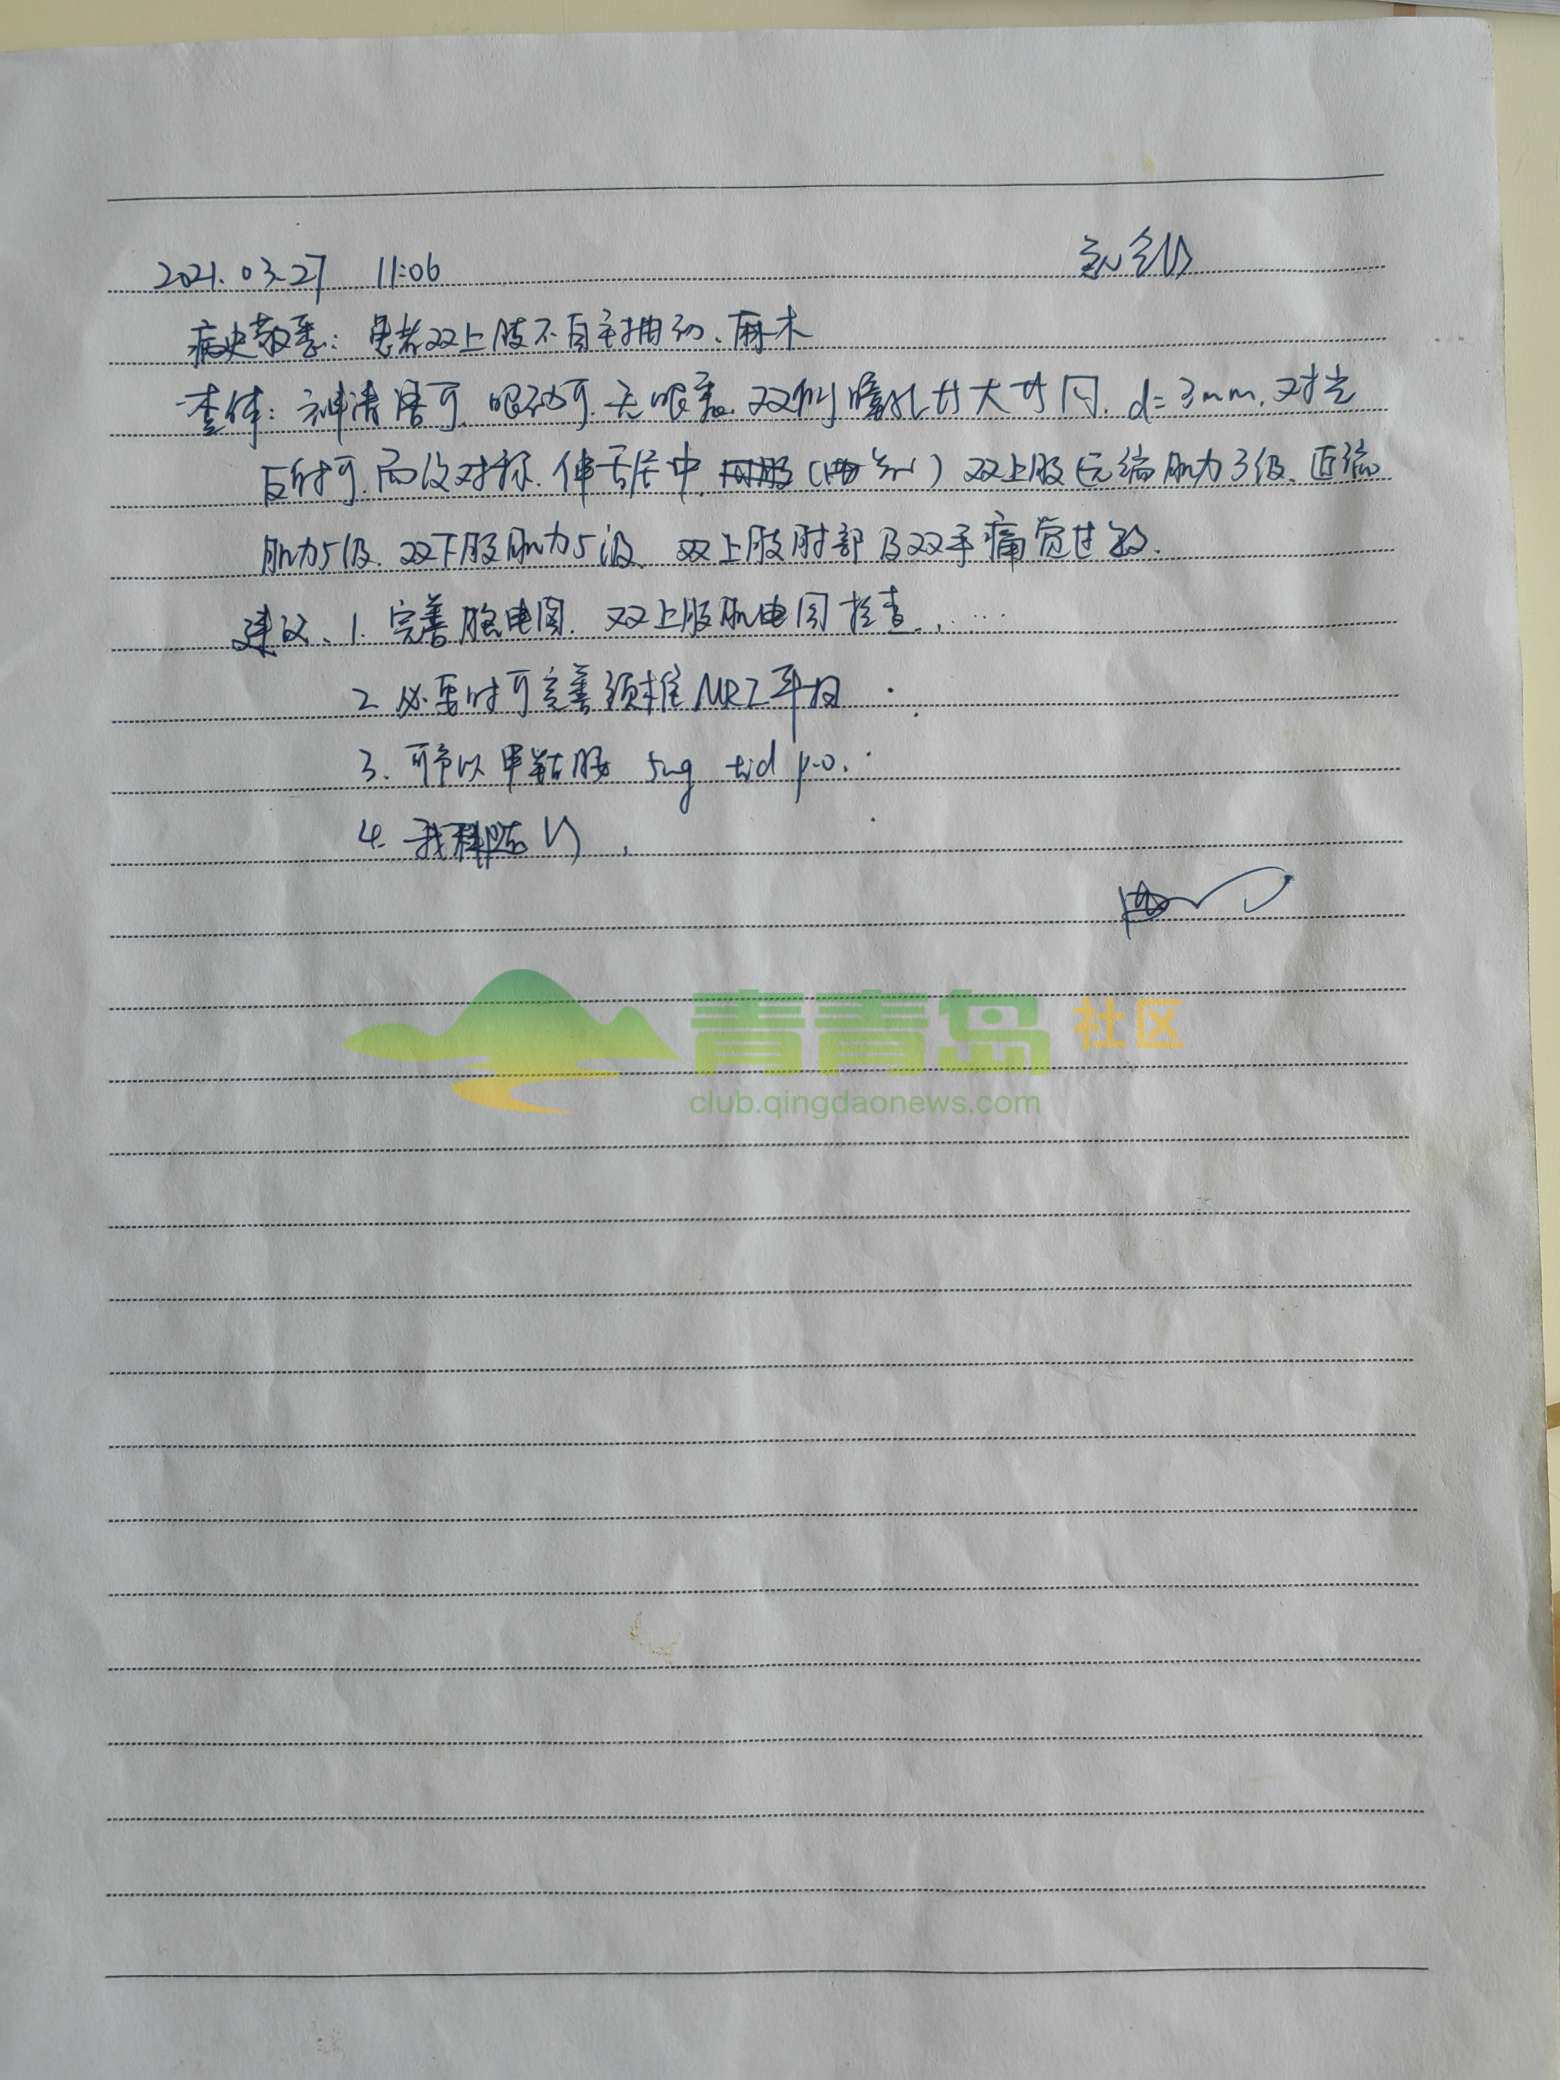 2021.03.27 11:06
病史敬悉:患者双上肢不自主抽动、麻木
查体:神清语可,眼动可,无眼震,双侧瞳孔等大等圆,d=3mm,对光
反射可,面纹对称,伸舌居中,双上肢远端肌力3级、近端
肌力5级,双下肢肌力5级,双上肢肘部及双手痛觉过敏.
建议、1.完善脑电图,双上肢肌电图检查.
2.必要时可完善颈椎MRI平扫
3.可予以甲钴胺 5mg tid p.o.
4.我科随诊
青青岛 社区
club.qingdaonews.com